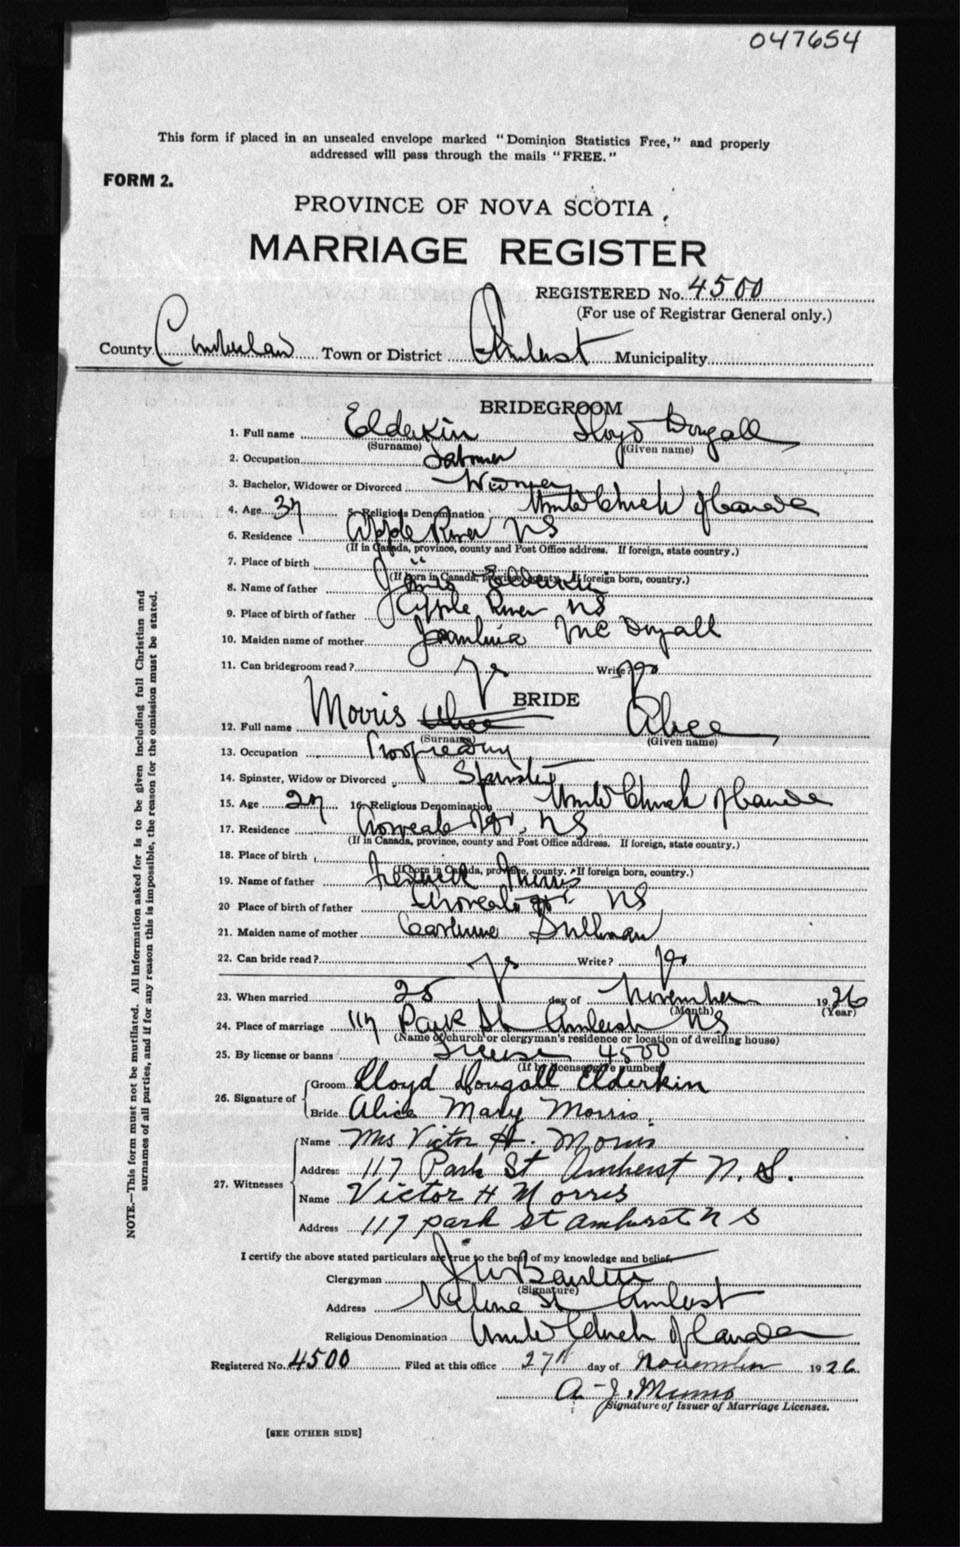 047654
This form if placed in an unsealed envelope marked "Dominion Statistics Free," and properly
addressed will pass through the mails "FREE."
FORM 2.
PROVINCE OF NOVA SCOTIA
MARRIAGE REGISTER
REGISTERED No. 4500
(For use of Registrar General only.)
County Cumberland Town or District Amherst Municipality
BRIDEGROOM
1. Full name Elderkin Lloyd Dougall
(Surname) (Given name)
2. Occupation Labourer
3. Bachelor, Widower or Divorced Widower
4. Age 37 5. Religious Denomination United Church of Canada
6. Residence Apple River NS
(If in Canada, province, county and Post Office address. If foreign, state country.)
7. Place of birth "
(If born in Canada, province, county. If foreign born, country.)
8. Name of father James Elderkin
9. Place of birth of father Apple River NS
10. Maiden name of mother McDougall
11. Can bridegroom read? Yes Write? Yes
BRIDE
12. Full name Morris Alice Alice
(Surname) (Given name)
13. Occupation
14. Spinster, Widow or Divorced Spinster
15. Age 27 16. Religious Denomination United Church of Canada
17. Residence NS
(If in Canada, province, county and Post Office address. If foreign, state country.)
18. Place of birth
(If born in Canada, province, county. If foreign born, country.)
19. Name of father Frederick Morris
20 Place of birth of father NS
21. Maiden name of mother
22. Can bride read? Yes Write? Yes
23. When married 25 day of November 1926
(Month) (Year)
24. Place of marriage 117 Park St Amherst NS
(Name of church or clergyman's residence or location of dwelling house)
25. By license or banns License 4500
(If by license give number)
26. Signature of Groom Lloyd Dougall Elderkin
Bride Alice Mary Morris.
27. Witnesses Name Mrs Victor H. Morris
Address 117 Park St Amherst N. S.
Name Victor H Morris
Address 117 park st amherst n s
I certify the above stated particulars are true to the best of my knowledge and belief.
Clergyman
(Signature)
Address St Amherst
Religious Denomination United Church of Canada
Registered No. 4500 Filed at this office 27th day of November 1926.
A. J. Munro
Signature of Issuer of Marriage Licenses.
[SEE OTHER SIDE]
NOTE.—This form must not be mutilated. All information asked for is to be given including full Christian and
surnames of all parties, and if for any reason this is impossible, the reason for the omission must be stated.